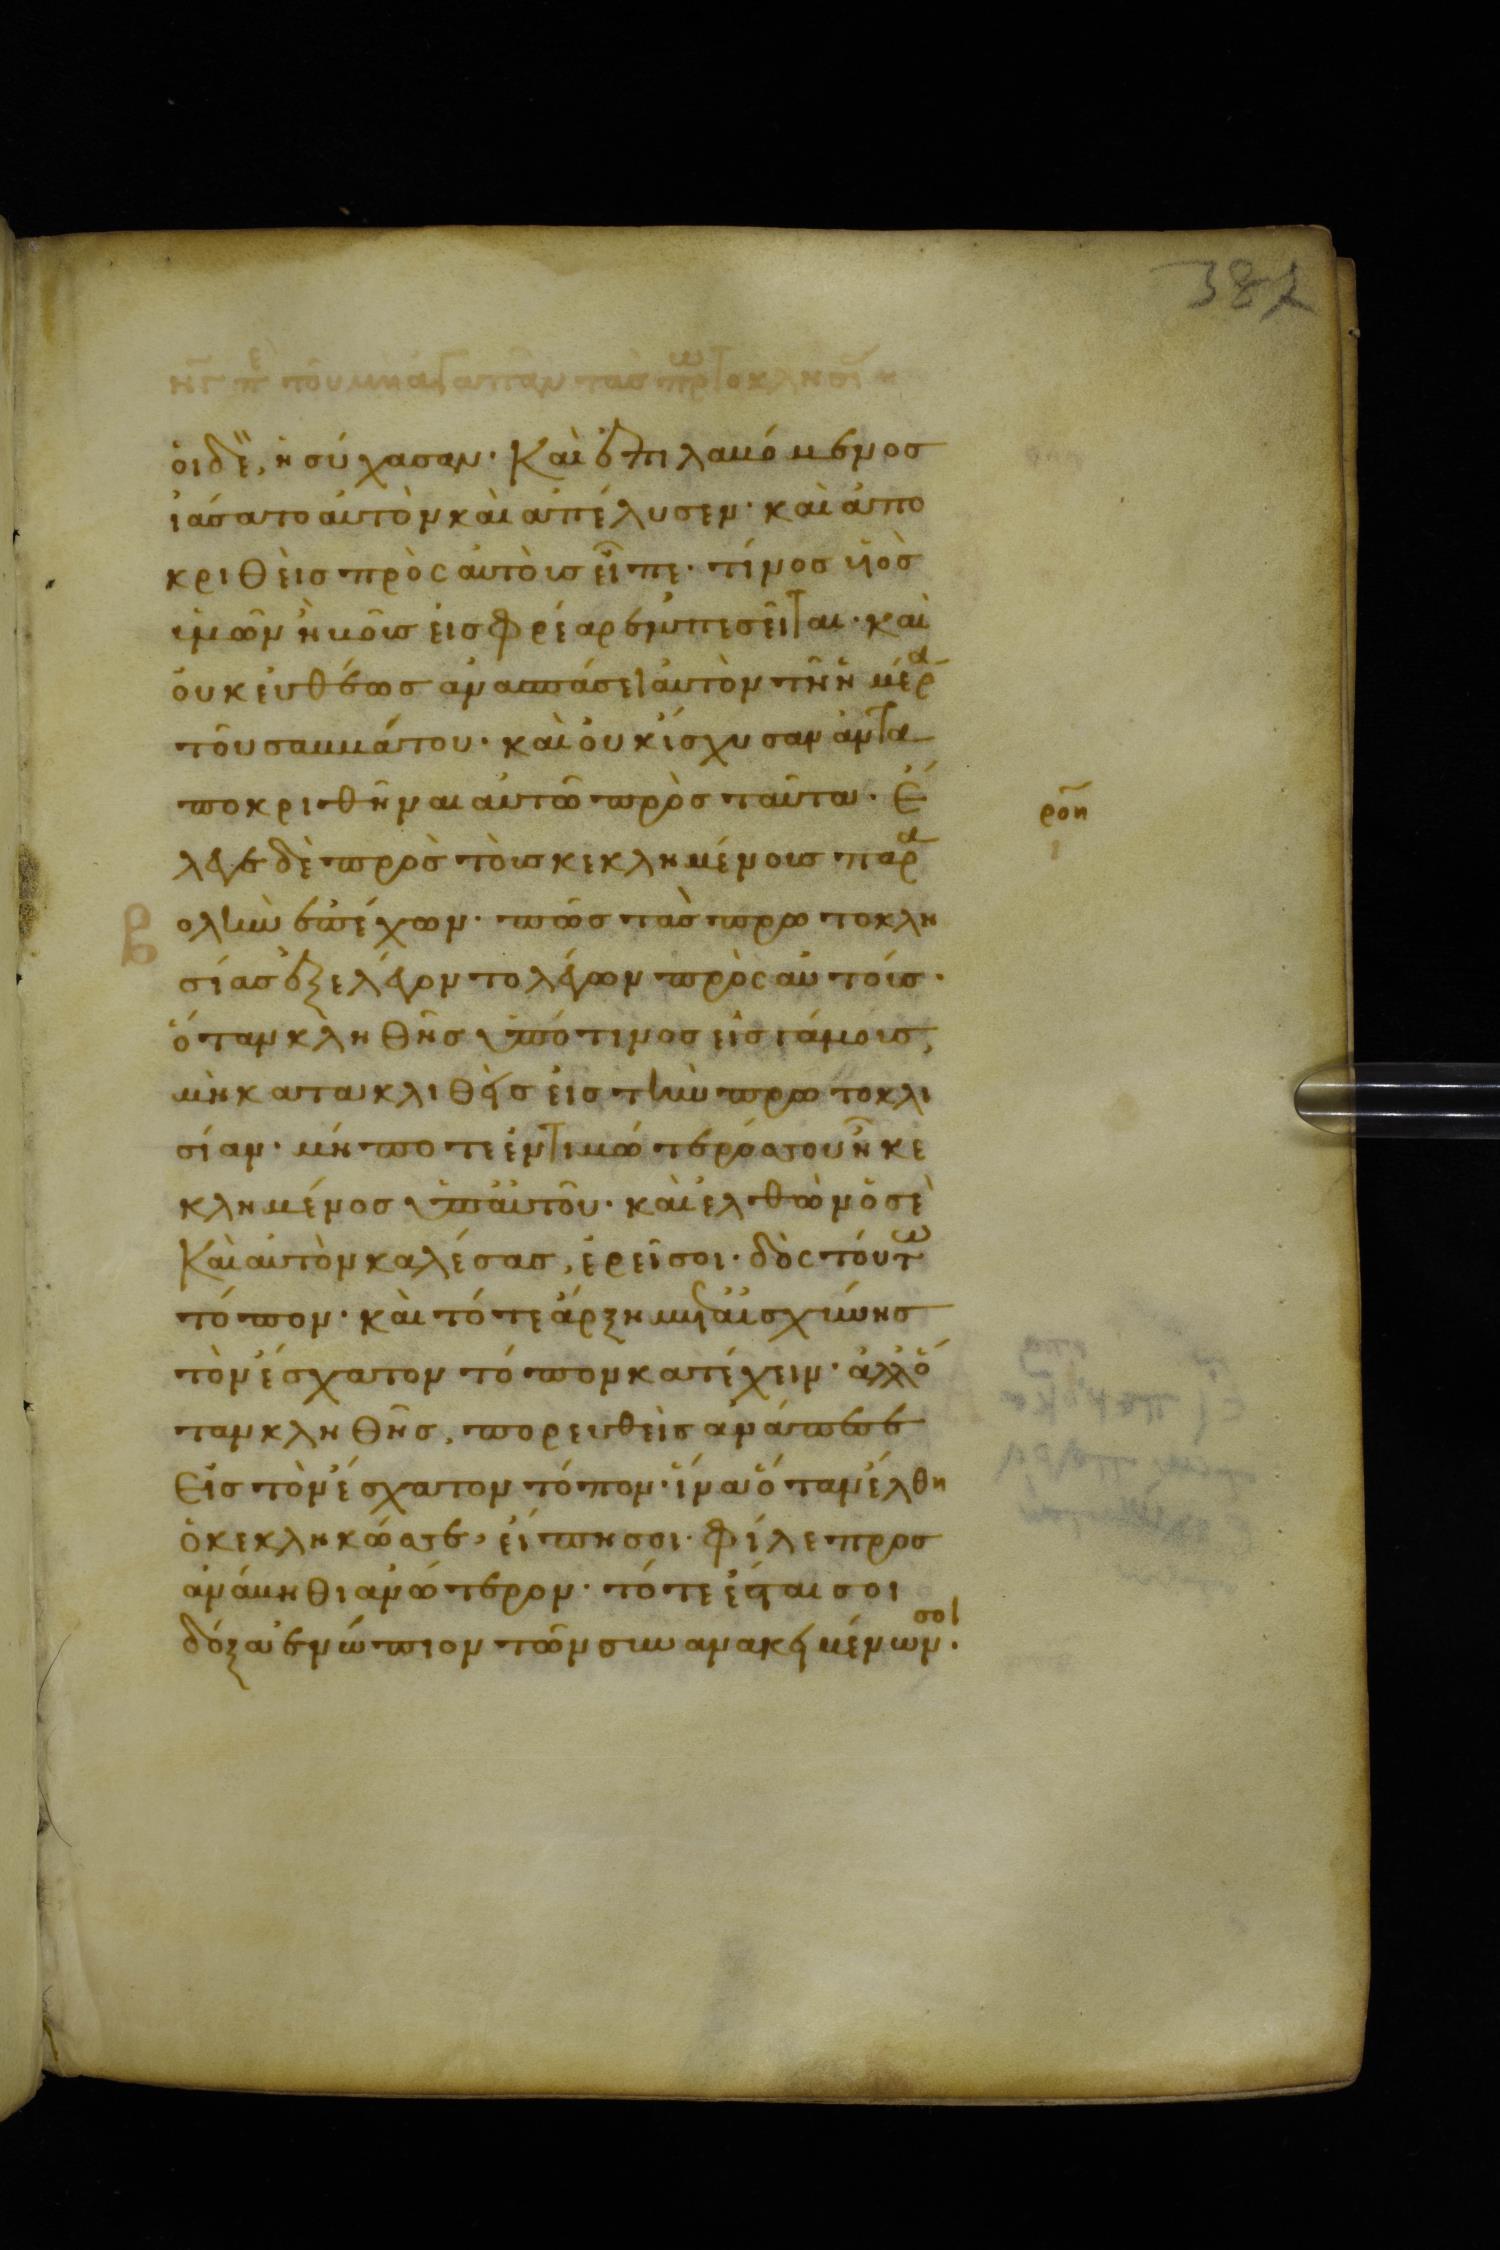 387
οἱ δὲ, ἡσύχασαν· Καὶ ἐπιλαβόμενος
ἰάσατο αὐτὸν καὶ ἀπέλυσεν· καὶ ἀπο
κριθεὶς πρὸς αὐτοὺς εἶπε· τίνος υἱὸς
ὑμῶν ἢ βοῦς εἰς φρέαρ ἐμπεσεῖται· καὶ
οὐκ εὐθέως ἀνασπάσει αὐτὸν τῆ ἡμέρα
τοῦ σαββάτου· καὶ οὐκ ἴσχυσαν ἀντα
ποκριθῆναι αὐτῶ πρὸς ταῦτα· Ἔ
λεγε δὲ πρὸς τοὺς κεκλημένους παρα
ρϙη
βολὴν ἐπέχων· πῶς τὰς πρωτοκλη
σίας ἐξελέγοντο λέγων πρὸς αὐτούς·
ὅταν κληθῆς ὑπό τινος εἰς γάμους,
μὴ κατακλιθῆς εἰς τὴν πρωτοκλι
σίαν· μήποτε ἐντιμώτερός σου ἦ κε
κλημένος ὑπ' αὐτοῦ· καὶ ἐλθὼν ὁ σὲ
Καὶ αὐτὸν καλέσας, ἐρεῖ σοι· δὸς τούτω
τόπον· καὶ τότε ἄρξη μετ' αἰσχύνης
τὸν ἔσχατον τόπον κατέχειν· ἀλλ' ὅ
ταν κληθῆς, πορευθεὶς ἀνάπεσε
Εἰς τὸν ἔσχατον τόπον· ἵνα ὅταν ἔλθη
ὁ κεκληκώς σε, εἴπη σοι· φίλε προς
ανάβηθι ἀνώτερον· τότε ἔσται σοι
δόξα ἐνώπιον τῶν συνανακειμένων σοι·